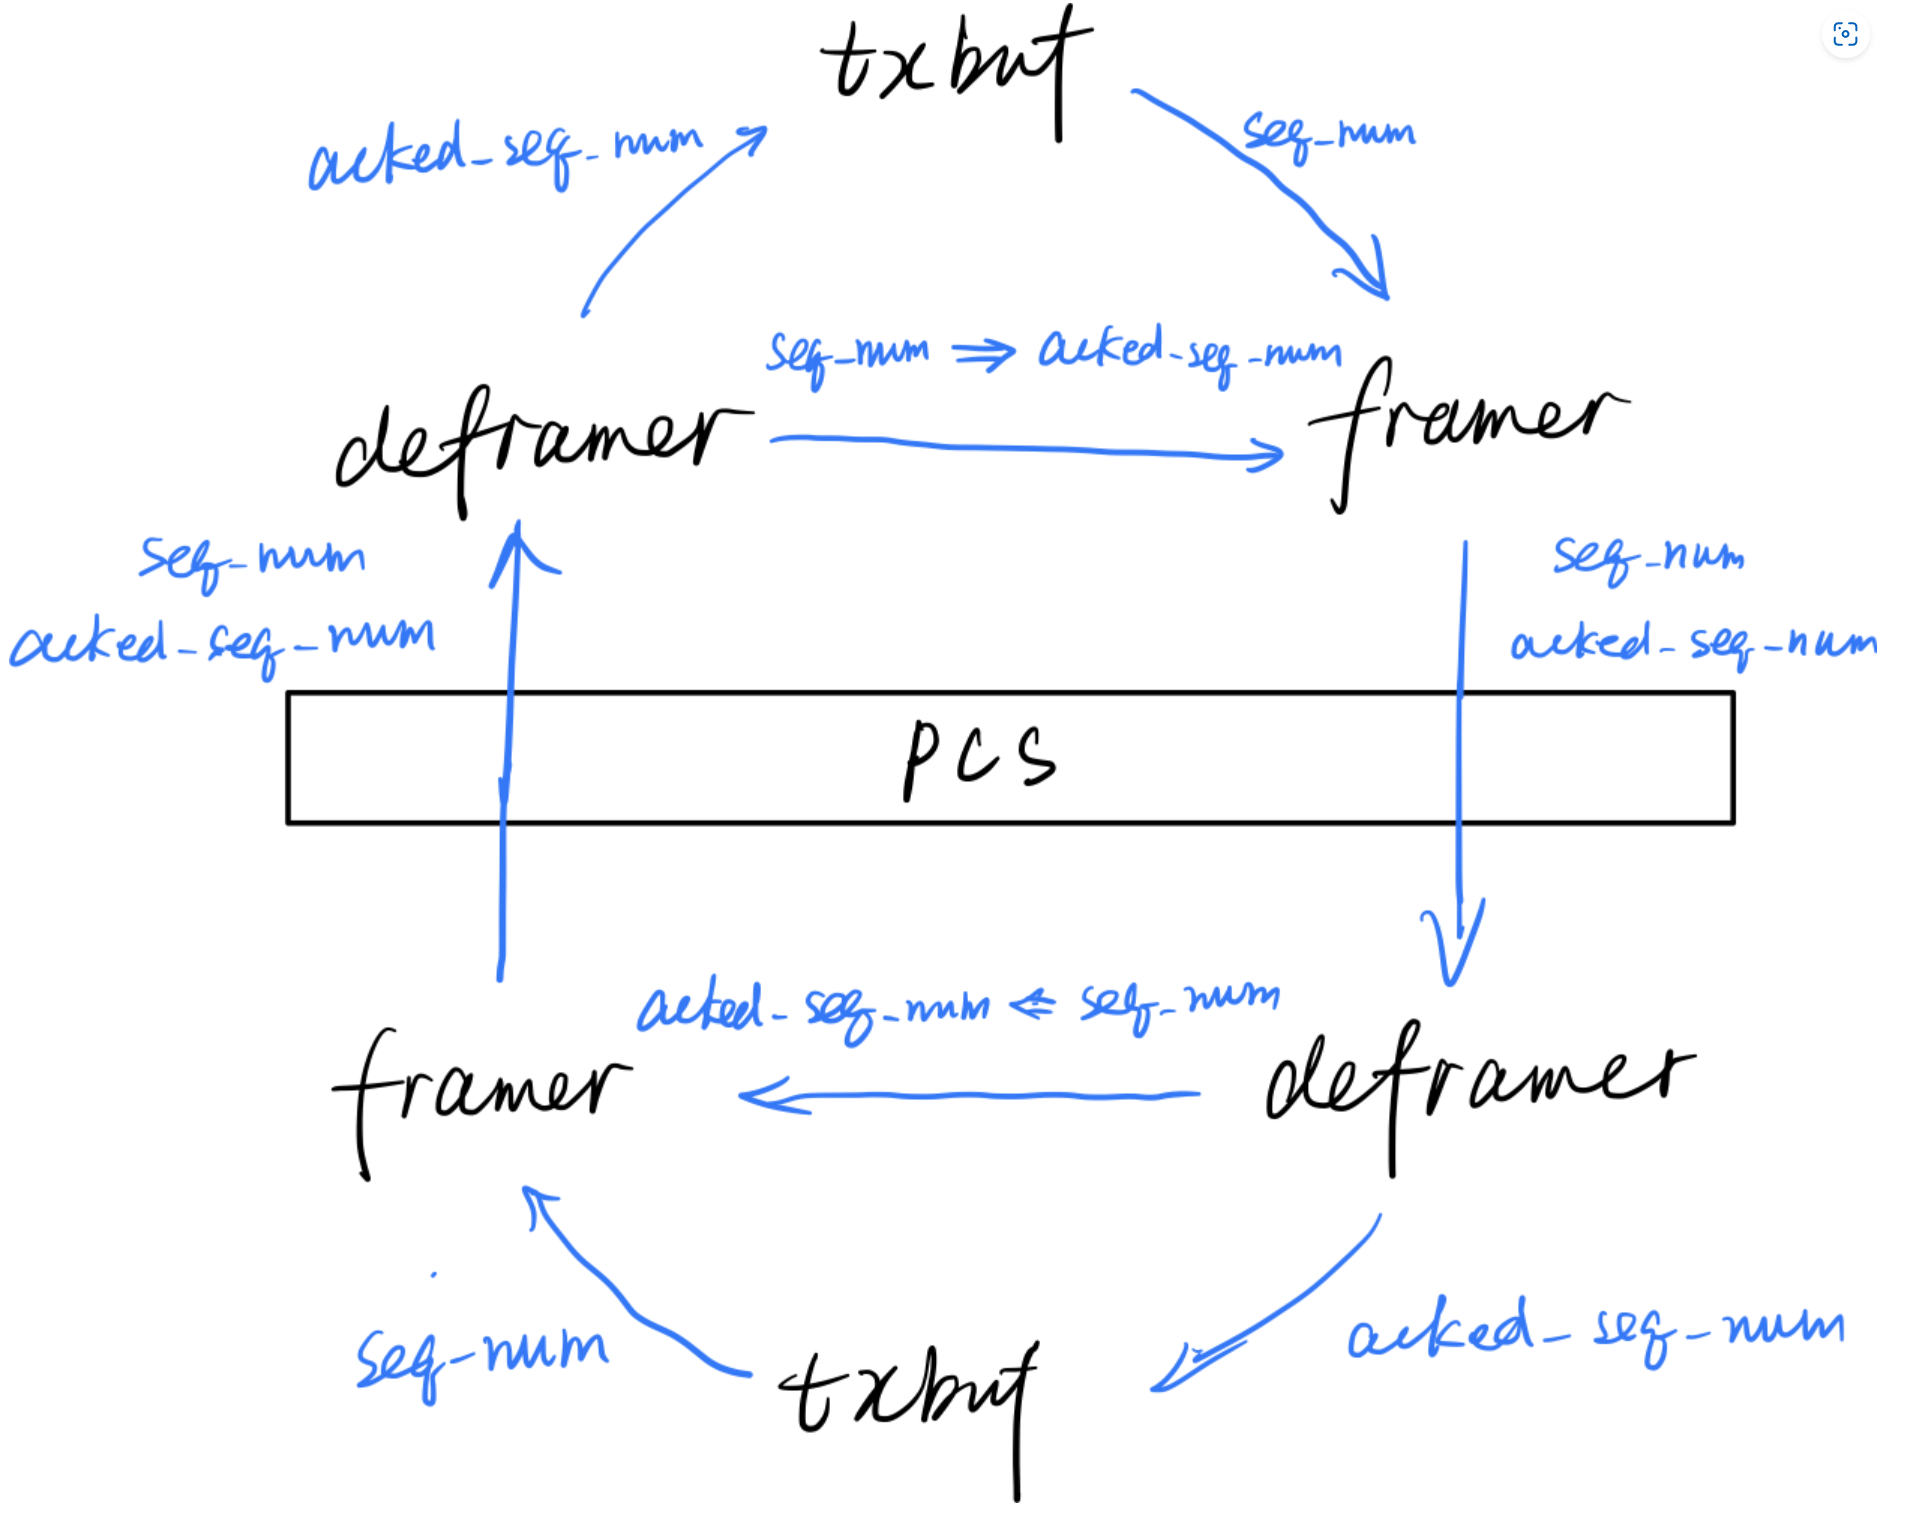 txbuf
acked_seq_num
seq_num
seq_num ⇒ acked_seq_num
deframer
framer
seq_num
acked_seq_num
seq_num
acked_seq_num
PCS
acked_seq_num ⇐ seq_num
framer
deframer
seq_num
acked_seq_num
txbuf